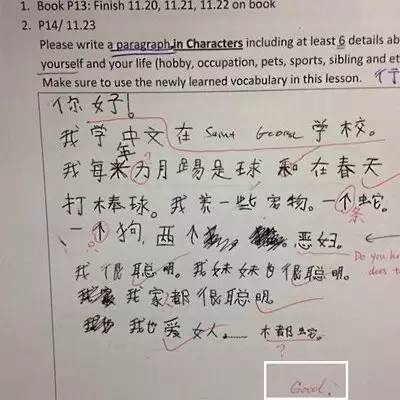 1. Book P13: Finish 11.20, 11.21, 11.22 on book
2. P14/ 11.23
Please write a paragraph in Characters including at least 6 details ab
yourself and your life (hobby, occupation, pets, sports, sibling and et
Make sure to use the newly learned vocabulary in this lesson.
你好!
我学中文在 Saint George 学校。
年
我每 个月踢足球 和在春天
打棒球。我养一些宠物。一个蛇。
条
一个狗,两个 恶妇。
Do you
does t
我很聪明。我妹妹也很聪明。
我家都很聪明。
我也爱女人......
?
Good!